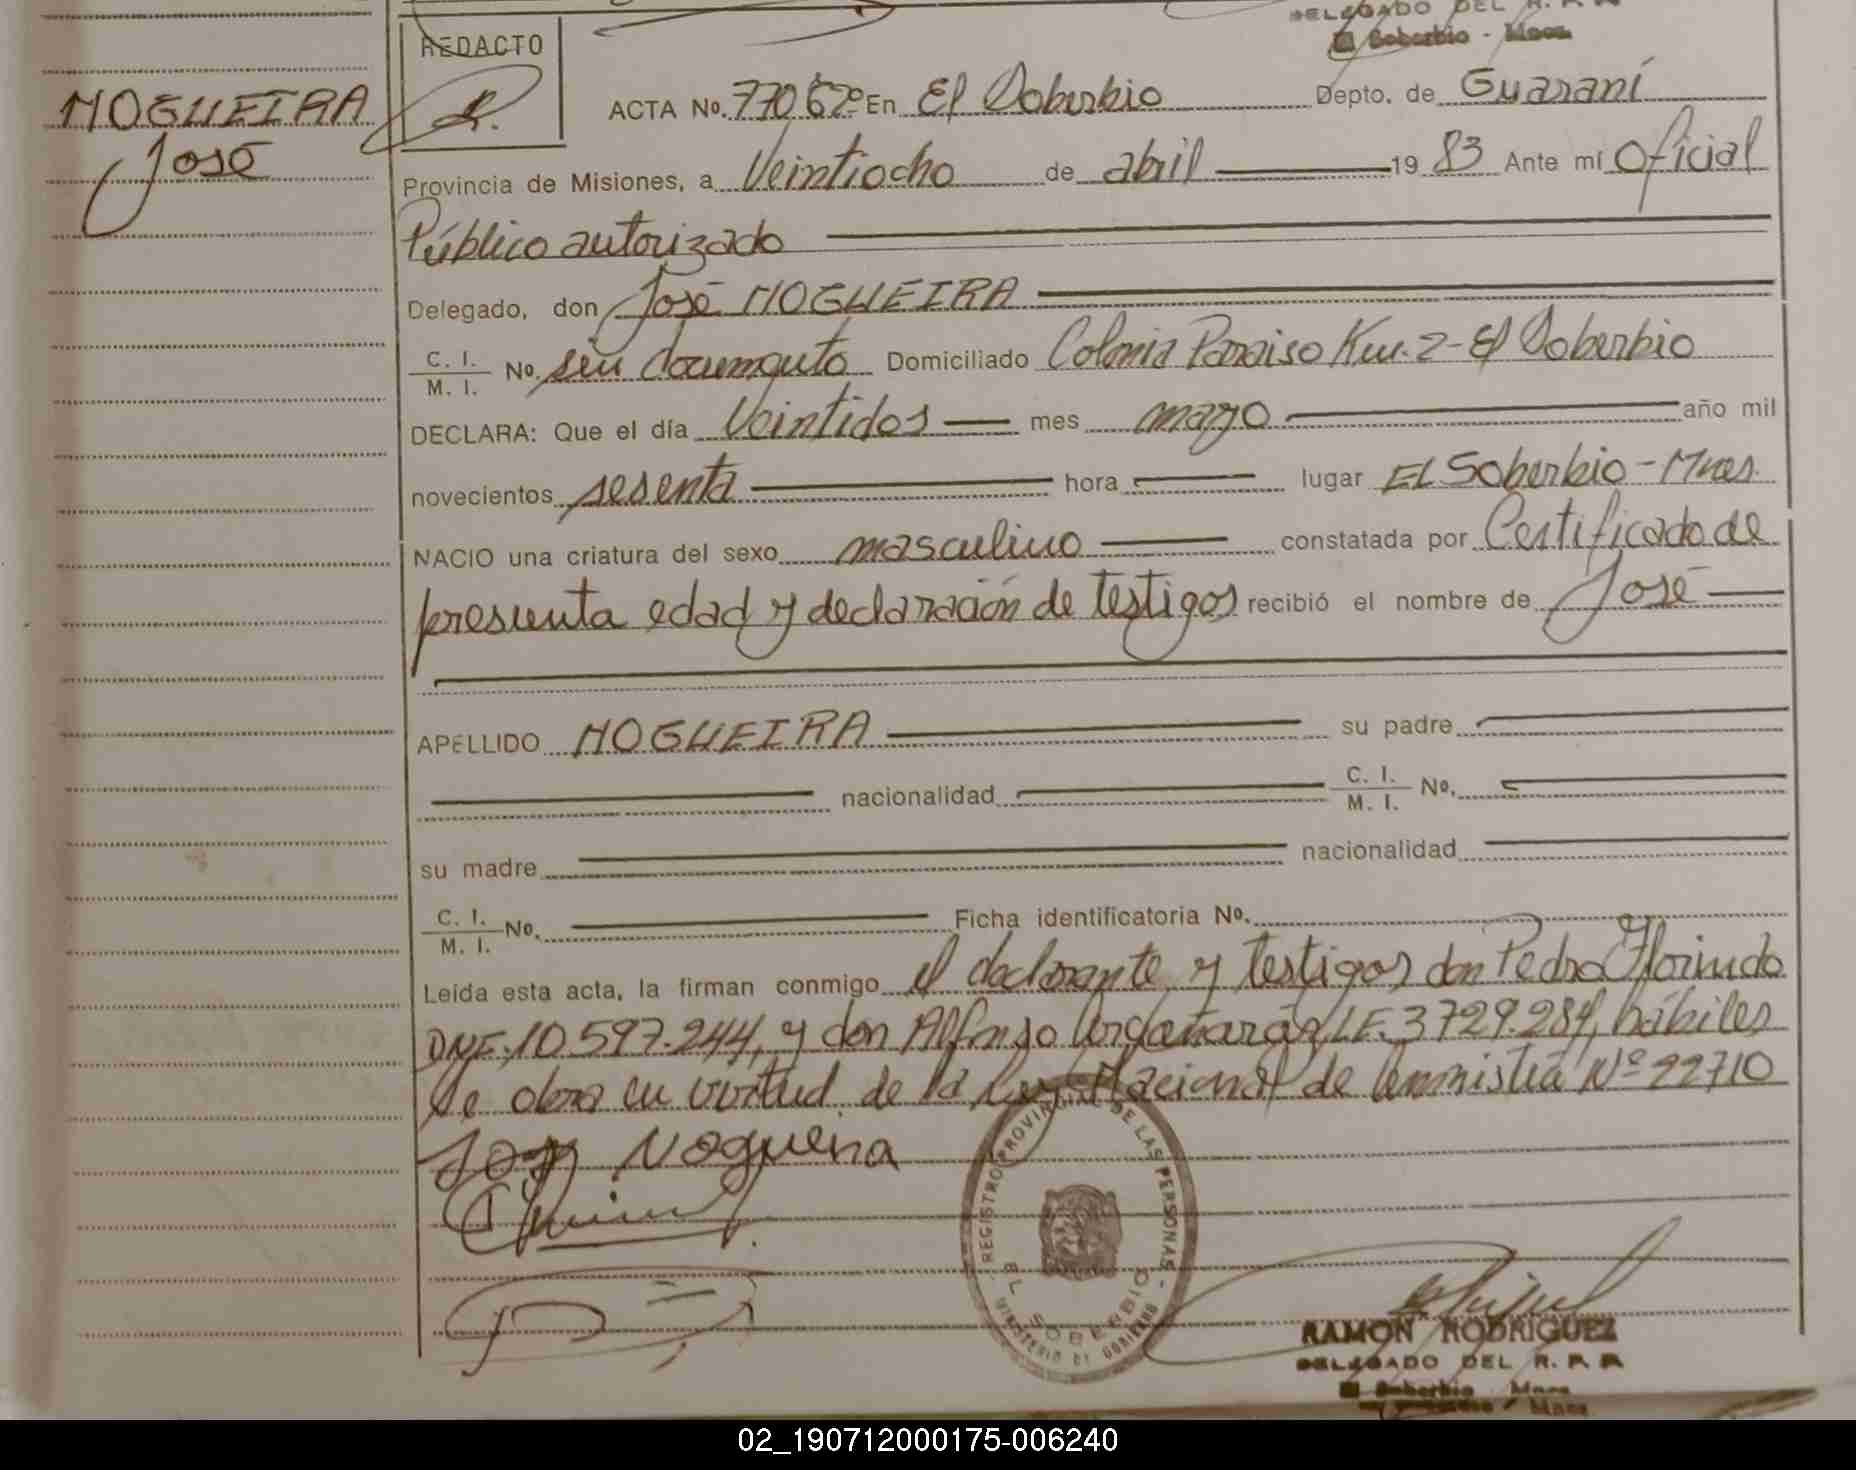 DELEGADO DEL R. P. P.
El Soberbio - Mnes.
REDACTO
NOGUEIRA
José
ACTA No. 77 En El Soberbio Depto. de Guaraní
Provincia de Misiones, a Veintiocho de abril 1983 Ante mí Oficial
Público autorizado
Delegado, don José NOGUEIRA
C. I.
M. I. No. sin documento Domiciliado Colonia Paraiso Km. 2 - El Soberbio
DECLARA: Que el día Veintidos mes mayo año mil
novecientos sesenta hora lugar EL Soberbio - Mnes.
NACIO una criatura del sexo masculino constatada por Certificado de
presunta edad y declaración de testigos recibió el nombre de José
APELLIDO NOGUEIRA su padre
nacionalidad C. I.
M. I. No.
su madre nacionalidad
C. I.
M. I. No. Ficha identificatoria No.
Leída esta acta, la firman conmigo el declarante y testigos don Pedro Florindo
DNI. 10.597.244, y don Alfonso LE. 3729.284, hábiles
Se obra en virtud de la Ley Nacional de Amnistia Nº 22710
José Nogueira
REGISTRO PROVINCIAL DE LAS PERSONAS -
EL SOBERBIO
MINISTERIO DE GOBIERNO
RAMON RODRIGUEZ
DELEGADO DEL R. P. P.
El Soberbio - Mnes.
02_190712000175-006240